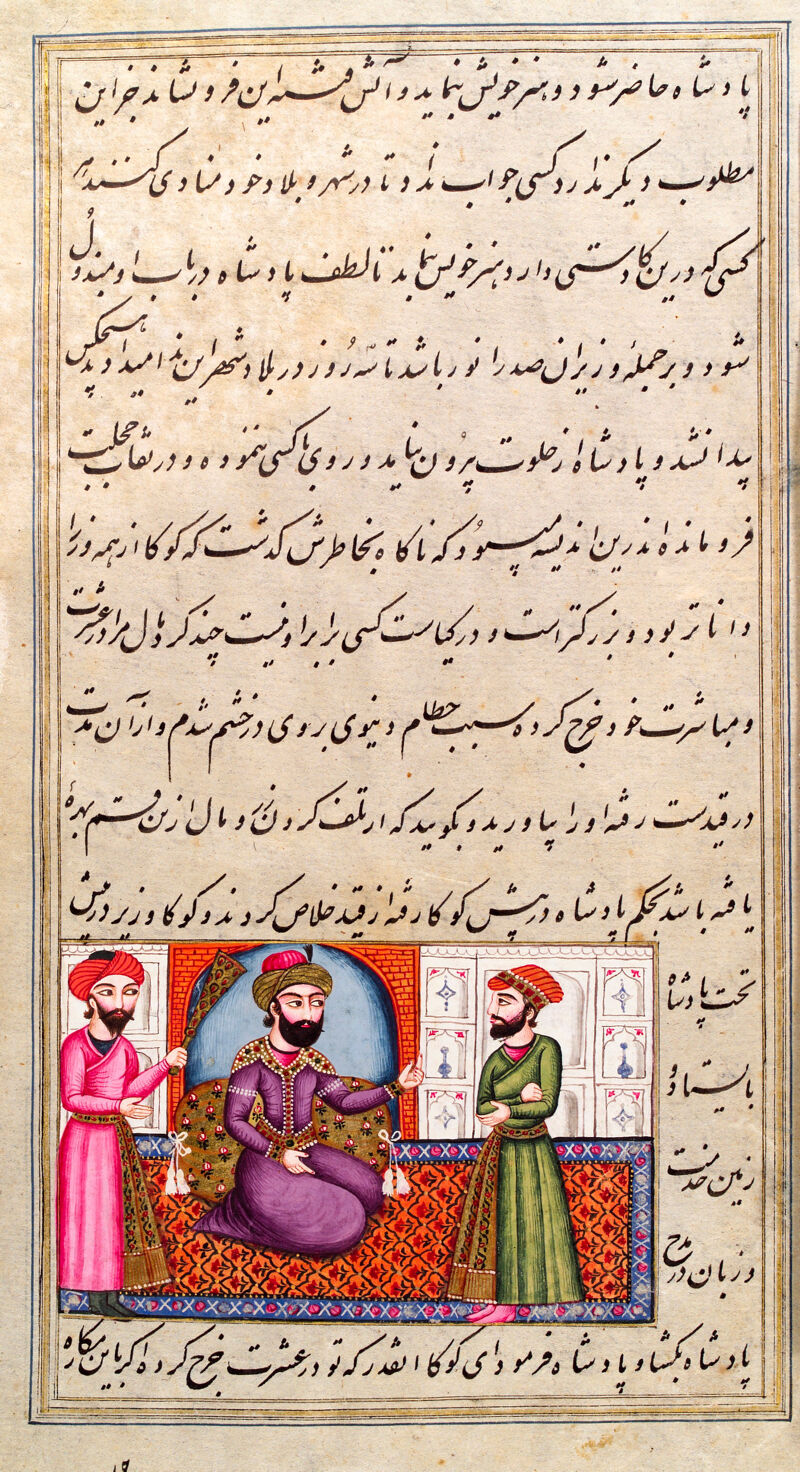 پادشاه حاضر شود و هنر خویش بنماید و آتش فتنه این فرو نشاند جز این
مطلوب دیگر ندارد کسی جواب نداد تا در شهر و بلاد خود منادی کنند هر
کسی که درین کار دستی دارد هنر خویش بنماید تا لطف پادشاه در باب او مبذول
شود و بر جملهٔ وزیران صدرانور باشد تا سه رُوز در بلاد شهر این ندا میدادند هیچکس
پیدا نشد و پادشاه از خلوت بیرُون نیاید و روی با کسی ننموده و در نقاب
فرومانده اندرین اندیشه میبُود که ناکاه بخاطرش کذشت که کوکا از همه وزرا
داناتر بود و بزرکتر است و در کیاست کسی برابر او نیست چند کرد مال مرا در عشرت
و مباشرت خود خرج کرده سبب حطام دنیوی بر وی در خشم شدم و از آن مدت
در قیدست رفته او را بیاورید و بکویید که از تلف کردن زر و مال ازین قسم بهرهٔ
یافته باشد بحکم پادشاه در پیش کوکا رفته از قید خلاص کردند و کوکا وزیر در پیش
تخت پادشاه
بایستاد و
زمین خدمت
و زبان در مدح
پادشاه بکشاد پادشاه فرمود ای کوکا اینقدر که تو در عشرت خرج کرده اکر باین کار